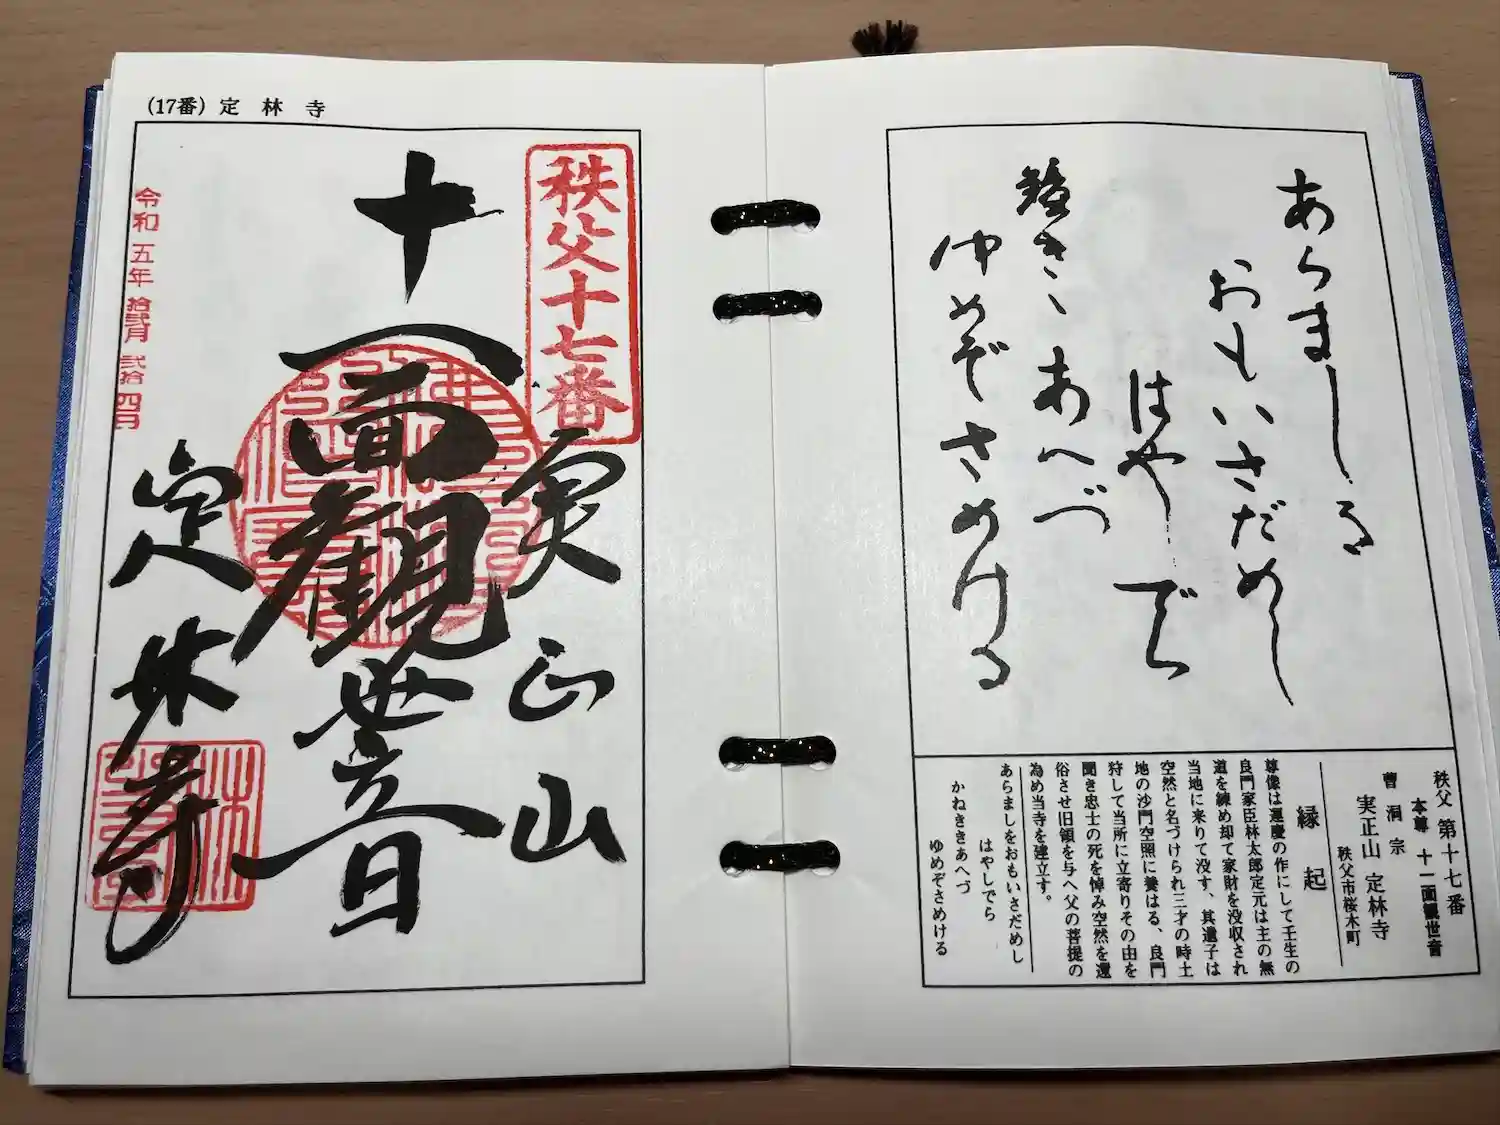 あらましを
おもいさだめし
はやしでら
鐘きゝあへづ
ゆめぞさめける
秩父 第十七番
本尊 十一面観世音
曹洞宗
実正山 定林寺
秩父市桜木町
縁起
尊像は運慶の作にして壬生の
良門家臣林太郎定元は主の無
道を練め却て家財を没収され
当地に来りて没す、其遺子は
空然と名づけられ三才の時土
地の沙門空照に養はる、良門
狩して当所に立寄りその由を
聞き忠士の死を悼み空然を還
俗させ旧領を与へ父の菩提の
為め当寺を建立す。
あらましをおもいさだめし
はやしでら
かねききあへづ
ゆめぞさめける
(17番) 定林寺
秩父十七番
実正山
十一面観世音
定林寺
令和五年拾弐月弐拾四日